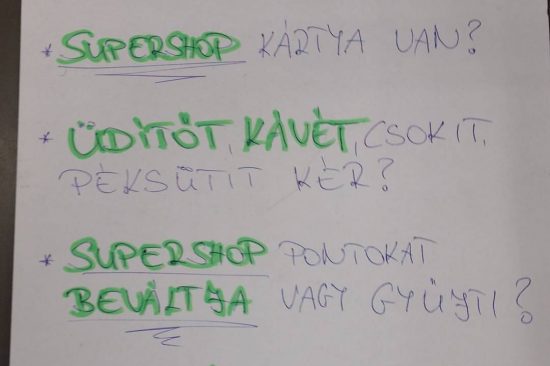 * SUPERSHOP KÁRTYA VAN?
* ÜDÍTŐT, KÁVÉT, CSOKIT,
PÉKSÜTIT KÉR?
* SUPERSHOP PONTOKAT
BEVÁLTJA VAGY GYŰJTI?